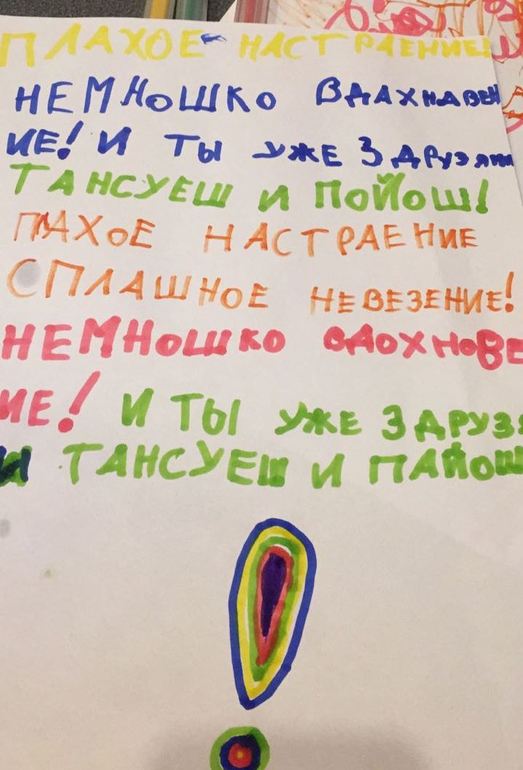 ПЛАХОЕ НАСТРАЕНИЕ!
НЕМНОШКО ВДАХНАВЕН
ИЕ! И ТЫ УЖЕ З ДРУЗЯМ
ТАНСУЕШ И ПОЙОШ!
ПЛАХОЕ НАСТРАЕНИЕ
СПЛАШНОЕ НЕВЕЗЕНИЕ!
НЕМНОШКО ВДОХНОВЕ
ИЕ! И ТЫ УЖЕ З ДРУЗЯ
И ТАНСУЕШ И ПАЙОШ